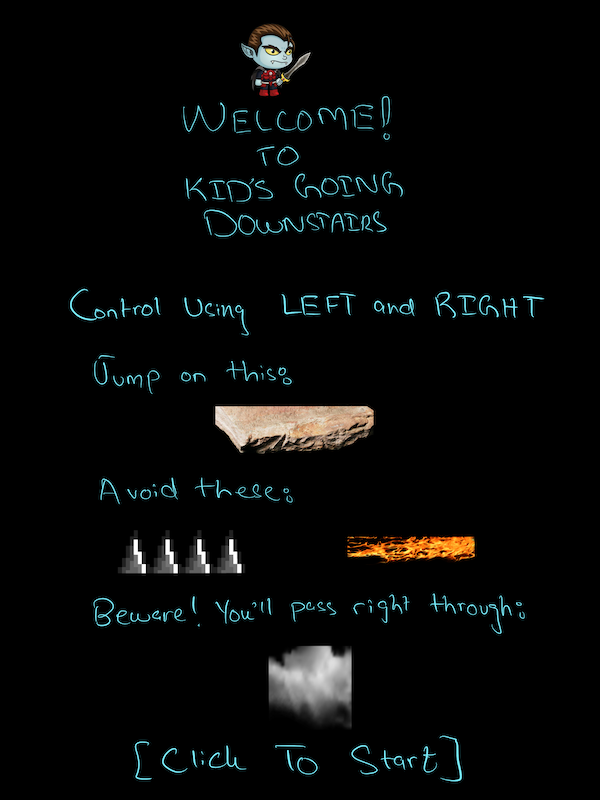 WELCOME!
TO
KID'S GOING
DOWNSTAIRS
Control Using LEFT and RIGHT
Jump on this:
Avoid these:
Beware! You'll pass right through:
[Click To Start]